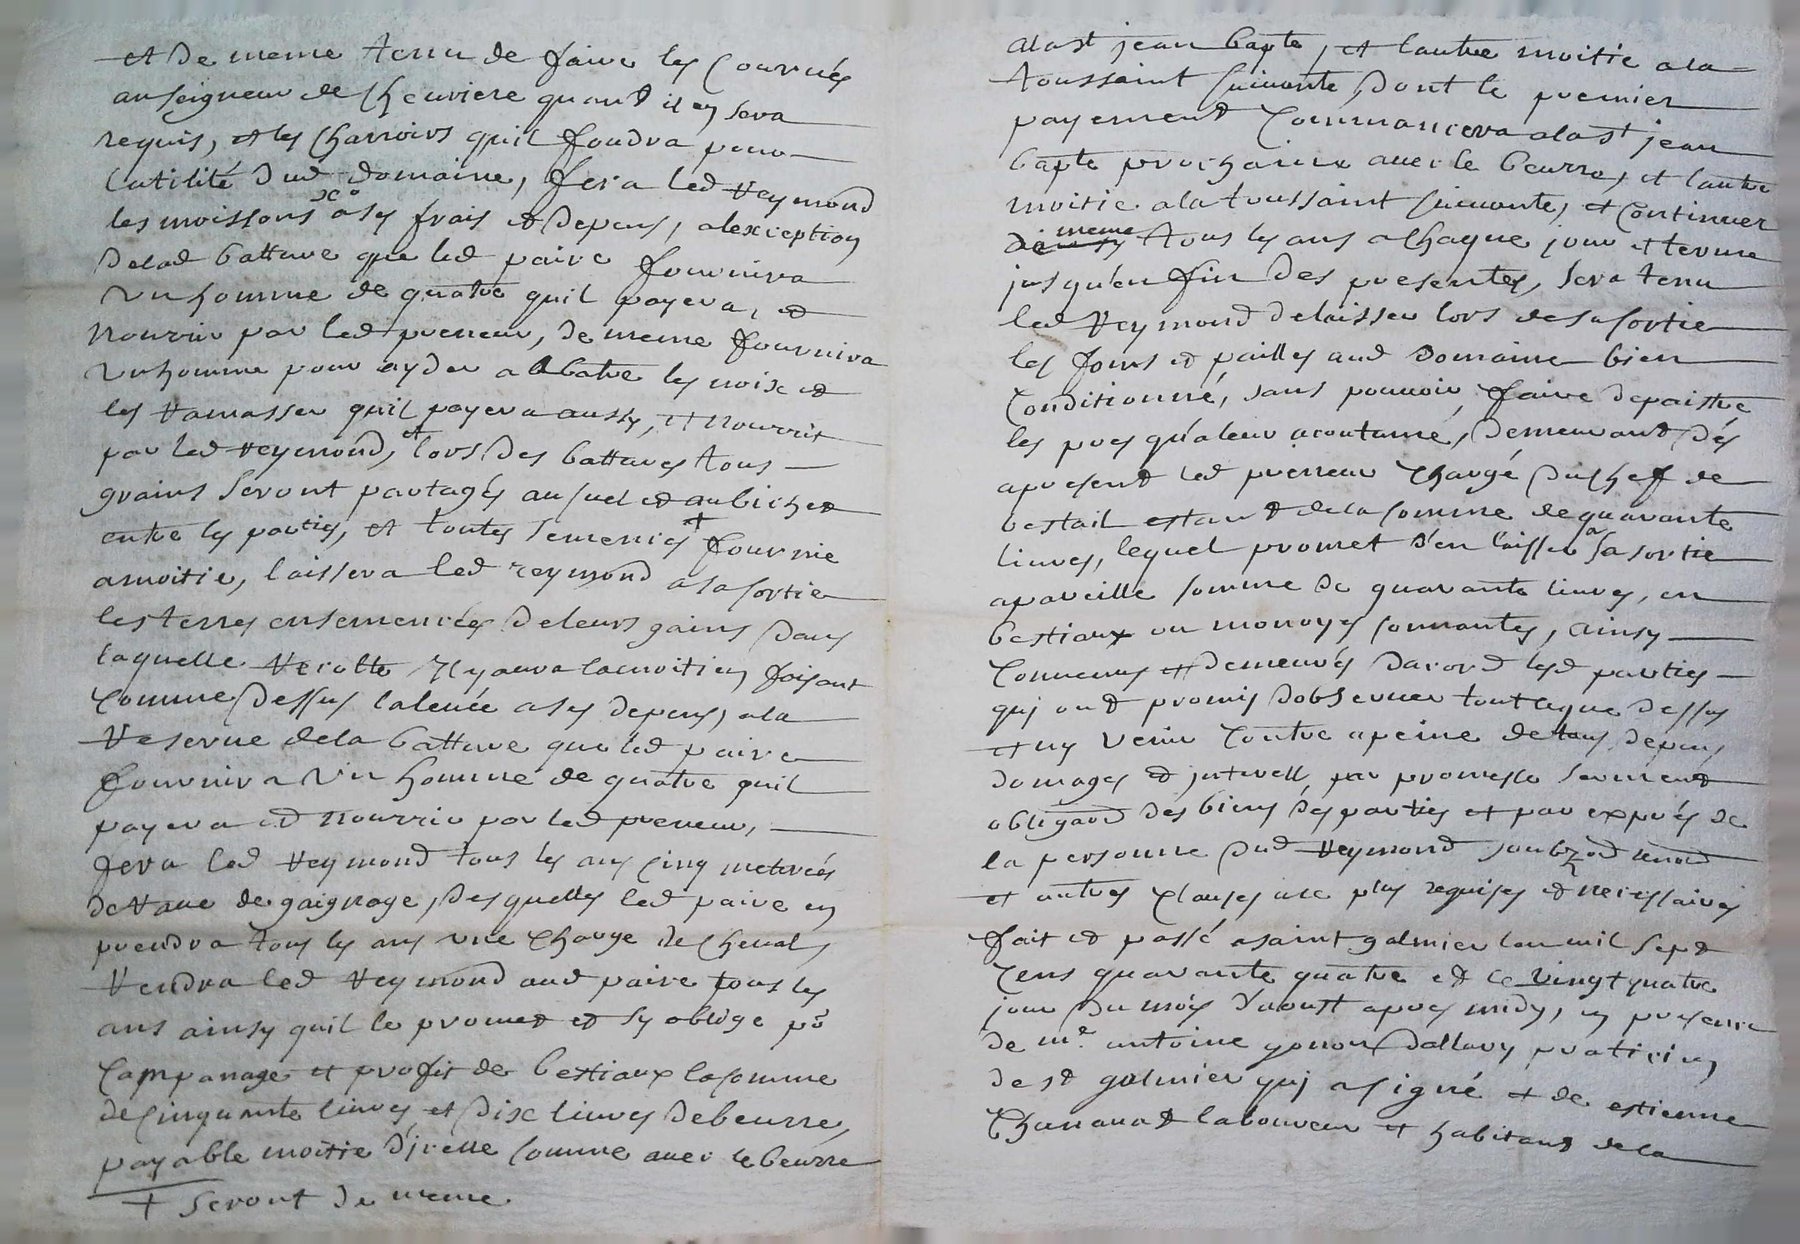 et de meme tenu de faire les Courvés
au seigneur de Cheuriere quand il en sera
requis, et les Charroirs quil foudra pour
lutilité dud domaine, fera led Reymond
les moissons a ses frais et depens, alexception
delad batture que led paire fournira
un homme de quatre quil payera, et
nourrir par led preneur, de meme fournira
un homme pour ayder a abatre les noix et
les ramasser quil payera aussy, et nourrit
par led Reymond, et lors des battures tous
grains seront partagés au suel et au bichet
entre les partis, et toutes semences + fournie
amoitie, laissera led reymond a sa sortie
les terres ensemencées deleurs gains dans
laquelle recolte il y aura lamoitien faisant
Comme dessus laleuée ases depens, ala
Reserue dela batture que led paire
fournira un homme de quatre quil
payera et nourrir par led preneur,
fera led Reymond tous les ans cinq meterées
de raue de gaignage, des quelles led paire en
prendra tous les ans une Charge de cheual,
Rendra led Reymond aud paire tous les
ans ainsy quil le promet et sy oblige po
Campanage et profit de bestiaux lasomme
de cinquante liures et dix liures debeurre,
payable moitie d'jcelle somme auec le beurre
+ seront de meme
alast jean bapte, et lautre moitie ala
toussaint suiuante, dont le premier
payement Commancera alast jean
bapte prochaine auec le beurre, et lautre
moitie ala toussaint suiuante, et Continuer
de meme tous les ans a chaque jour et terme
jusqu'en fin des presentes, sera tenu
led Reymond delaisser lors desasortie
les foins et pailles aud domaine bien
Conditionné, sans pouuoir faire depaistre
les pres qu'aleur acoutumé, demeurant dés
apresent led preneur Chargé du chef de
bestail estant dela somme de quarante
liures, lequel promet d'en laisser a sa sortie
apareille somme de quarante liures, en
bestiaux ou monoyes sonnantes, ainsy
Conuenus et demeurés dacord lesd parties
qui ont promis dobseruer tout ceque dessus
et ny Venir Contre apeine de tous depens
domages et jnterest, par promesse serment
obligaon des biens des parties et par exprés de
la personne dud Reymond
et autres Clauses plus requises et necessaires
fait et passé asaint galmier lan mil sept
Cens quarante quatre et ce vingt quatre
jour du mois d'aoust apres midy, en presence
de me antoine gonon dallary praticien
de st galmier qui a signé et de estienne
Chanauat laboureur et habitant dela